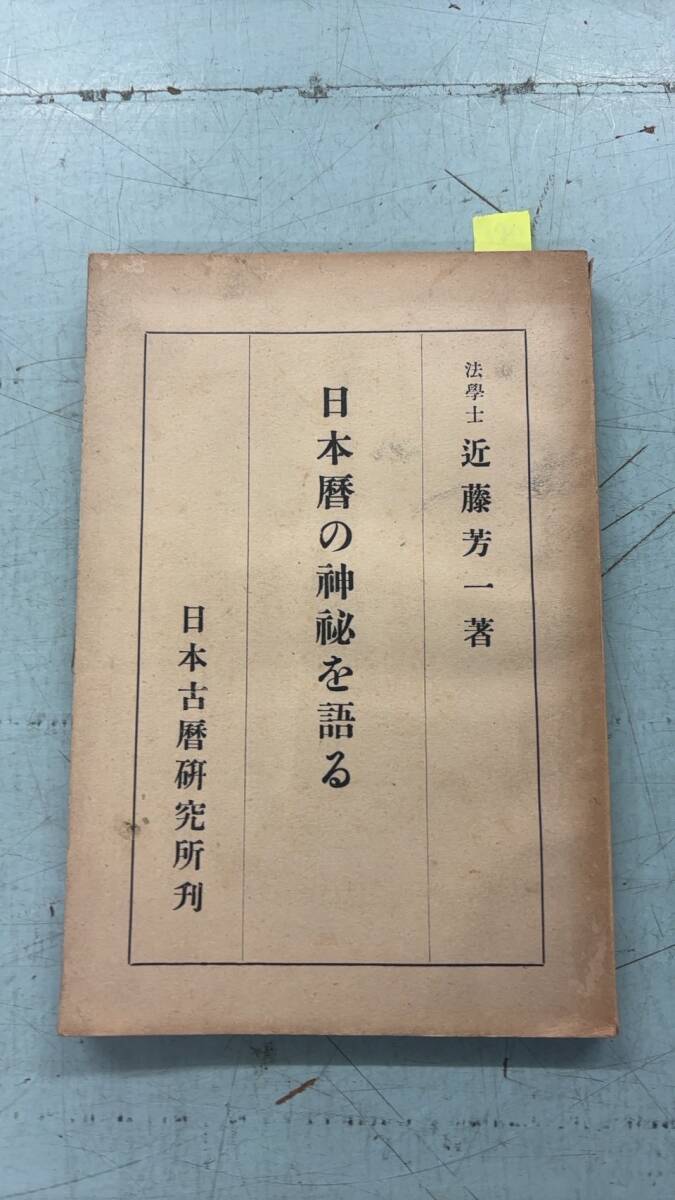 法學士 近藤芳一著
日本曆の神祕を語る
日本古曆硏究所刊